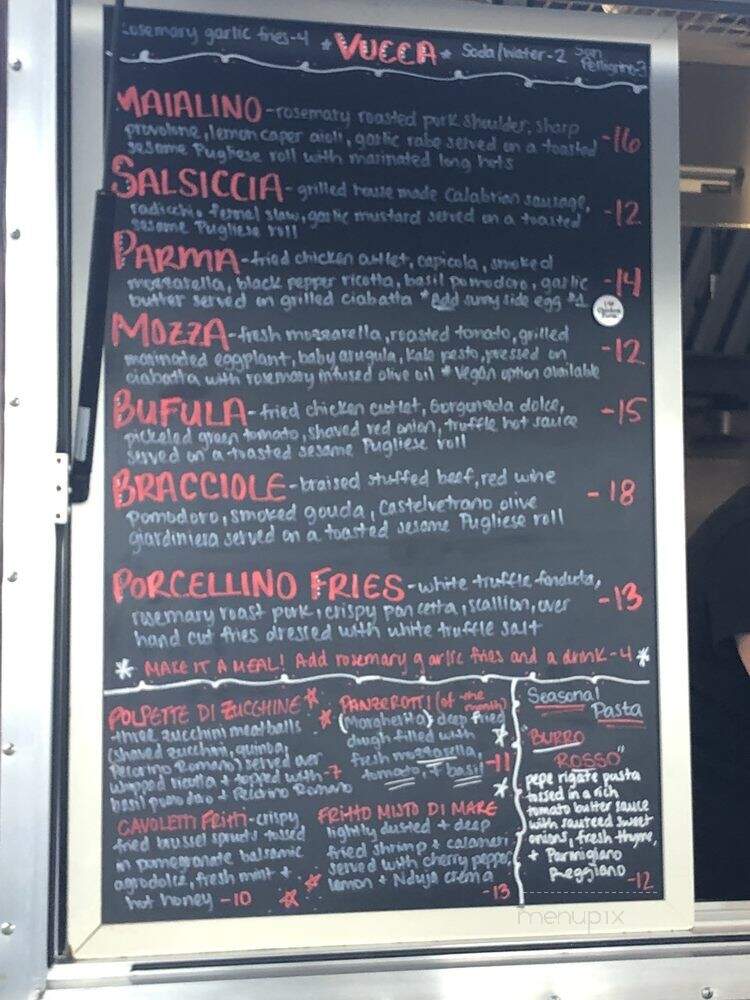 Rosemary garlic fries-4 *VUCCA* Soda/Water-2 San Pellegrino-3
MAIALINO-rosemary roasted pork shoulder, sharp
provolone, lemon caper aioli, garlic rabe served on a toasted -16
sesame Pugliese roll with marinated long hots
SALSICCIA-grilled house made Calabrian sausage,
radicchio fennel slaw, garlic mustard served on a toasted -12
sesame Pugliese roll
PARMA-fried chicken cutlet, capicola, smoked
mozzarella, black pepper ricotta, basil pomodoro, garlic -14
butter served on grilled ciabatta *Add sunny side egg $1
MOZZA-fresh mozzarella, roasted tomato, grilled
marinated eggplant, baby arugula, kale pesto, pressed on -12
ciabatta with rosemary infused olive oil *Vegan option available
BUFULA-fried chicken cutlet, Gorgonzola dolce, -15
pickeled green tomato, shaved red onion, truffle hot sauce
served on a toasted sesame Pugliese roll
BRACCIOLE-braised stuffed beef, red wine -18
pomodoro, smoked gouda, Castelvetrano olive
giardiniera served on a toasted sesame Pugliese roll
PORCELLINO FRIES-white truffle fonduta, -13
rosemary roast pork, crispy pancetta, scallion, over
hand cut fries dressed with white truffle salt
* MAKE IT A MEAL! Add rosemary garlic fries and a drink-4 *
POLPETTE DI ZUCCHINE
three zucchini meatballs
(shaved zucchini, quinoa,
Pecorino Romano) served over
whipped ricotta + topped with -7
basil pomodoro + Pecorino Romano
CAVOLETTI FRITTI-crispy
fried brussel sprouts tossed
in pomegranate balsamic
agrodolce, fresh mint +
hot honey -10
PANZEROTTI (of the month)
(Margherita) deep fried
dough filled with
fresh mozzarella, -11
tomato, + basil
FRITTO MISTO DI MARE
lightly dusted + deep
fried shrimp + calamari
served with cherry pepper
lemon + Nduja crema
-13
Seasonal
Pasta
"BURRO
ROSSO"
pepe rigate pasta
tossed in a rich
tomato butter sauce
with sauteed sweet
onions, fresh thyme,
+ Parmigiano
Reggiano -12
menupix